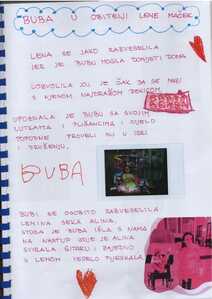 BUBA U OBITELJI LENE MAČEK
LENA SE JAKO RAZVESELILA
JER JE BUBU MOGLA DONIJETI DOMA
UDEVILA JOJ JE ČAK DA SE MAZI
S NJENOM NAJDRAŽOM DEKICOM
UPOZNALA JE BUBU SA SVOJIM
LUTKAMA I PLIŠANCIMA I CIJELO
POPODNE PROVELI SU U IGRI
I DRUŽENJU.
BUBA
BUBI SE OSOBITO RAZVESELILA
LENINA SEKA ALINA,
STOGA JE BUBA IŠLA S NAMA
NA NASTUP GDJE JE ALINA
SVIRALA GITARU I ZAJEDNO
S LENOM VESELO PJEVALA.